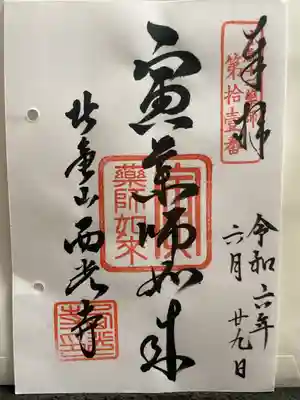 奉拝
第拾壹番
令和六年
六月廿九日
寅薬師如来
薬師如来
北金山西光寺